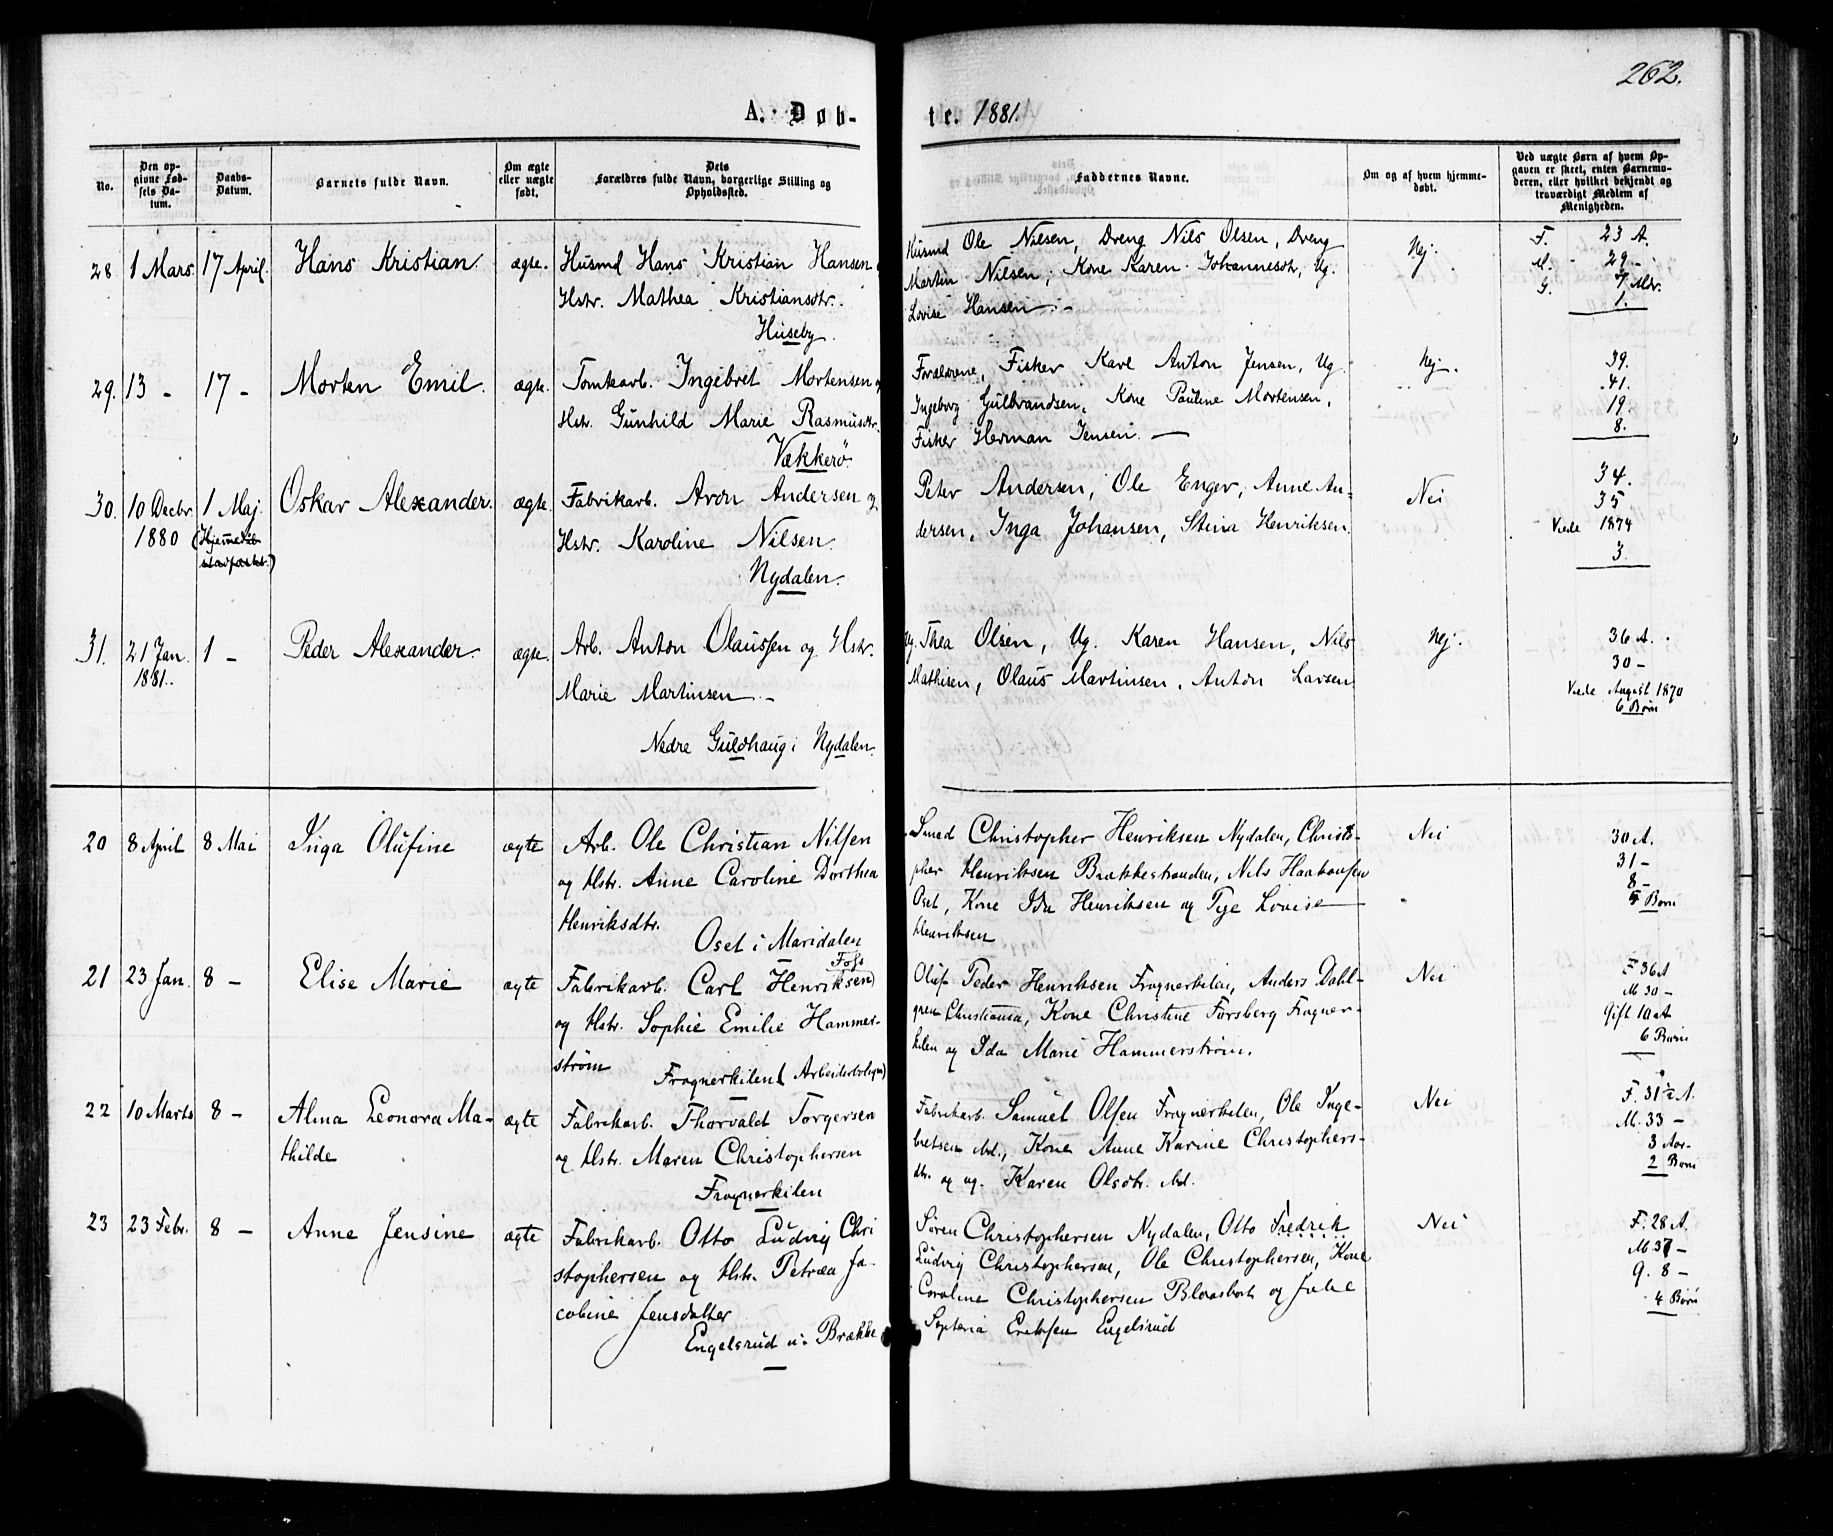 262.
A. Døb-
te. 1881.
No.
Den op-
givne Fød-
sels Da-
tum.
Daabs-
Datum.
Barnets fulde Navn.
Om ægte
eller uægte
født.
Dets
Forældres fulde Navn, borgerlige Stilling og
Opholdssted.
Faddernes Navne.
Om og af hvem hjemme-
døbt.
Ved uægte Børn af hvem Op-
gaven er skeet, enten Barnemo-
deren, eller hvilket bekjendt og
troværdigt Medlem af
Menigheden.
28 1 Mars. 17 April. Hans Kristian. ægte. Husmd Hans Kristian Hansen
Hstr. Mathea Kristiansdtr.
Huseby.
Husmd Ole Nilsen, Dreng Nils Olsen, Dreng
Martin Nilsen, Kone Karen Johannesdtr, Ug.
Lovise Hansen. –
Nej.
F. 23 A.
M. 29 –
G. 7 Mdr.
1.
29. 13 – 17 – Morten Emil. ægte. Tomtearb. Ingebret Mortensen og
Hstr. Gunhild Marie Rasmusdtr.
Vækkerø.
Forældrene, Fisker Karl Anton Jensen, Ug.
Ingeborg Gulbrandsen, Kone Pauline Mortensen,
Fisker Herman Jensen. –
Nej.
39.
41.
19.
8.
30. 10 Decbr. 1 Maj. Oskar Alexander. ægte. Fabrikarb. Aron Andersen og
1880 (Hjemmedåb
stadfæstet.)
Hstr. Karoline Nilsen.
Nydalen.
Peter Andersen, Ole Enger, Anne An-
dersen, Inga Johansen, Stina Henriksen.
Nei
34.
35
Viede 1874
3.
31. 21 Jan. 1 – Peder Alexander. ægte. Arb. Anton Olaussen og Hstr.
1881.
Marie Martinsen. –
Nedre Guldhaug i Nydalen.
Ug. Thea Olsen, Ug. Karen Hansen, Nils
Mathisen, Olaus Martinsen, Anton Larsen
Nej.
36 A.
30 –
Viede August 1870
6 Børn
20 8 April 8 Mai Inga Olufine ægte Arb. Ole Christian Nilsen
og Hstr. Anne Caroline Dorthea
Henriksdtr.
Oset i Maridalen
Smed Christopher Henriksen Nydalen, Christo-
pher Henriksen Brækkestranden, Nils Haakonsen
Oset, Kone Ida Henriksen og Pige Lovise
Henriksen
Nei
30 A.
31 –
8 –
Børn
21 23 Jan. 8 – Elise Marie ægte Fabrikarb. Carl Henriksen
og Hstr. Sophie Emilie Hammer-
strøm
Frognerkilen (Arbeiderbolign)
Oluf Peder Henriksen Frognerkilen, Anders Dahl-
gren Christiania, Kone Christine Forsberg Frogner-
kilen og Ida Marie Hammerstrøm.
Nei
F 36 A
M 30 –
Gift 10 A
6 Børn
22 10 Marts 8 – Alma Leonora Ma- ægte Fabrikarb. Thorvald Torgersen
thilde
og Hstr. Maren Christophersen
Frognerkilen
Fabrikarb. Samuel Olsen Frognerkilen, Ole Inge-
bretsen ibd., Kone Anne Karine Christophers-
dtr. og ug. Karen Olsdtr. ibd.
Nei
F. 31½ A.
M. 33 –
3 Aar
2 Børn
23 23 Febr. 8 – Anne Jensine ægte Fabrikarb. Otto Ludvig Chri
stophersen og Hstr. Petrea Ja-
cobine Jensdatter
Engelsrud u. Brække
Søren Christophersen Nydalen, Otto Fredrik
Ludvig Christophersen, Ole Christophersen, Kone
Caroline Christophersen og
Eriksen Engelsrud
Nei
F. 28 A.
M 37 –
G. 8 –
4 Børn